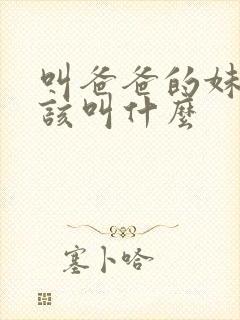 叫爸爸的妹
該叫什麼
塞卜哈